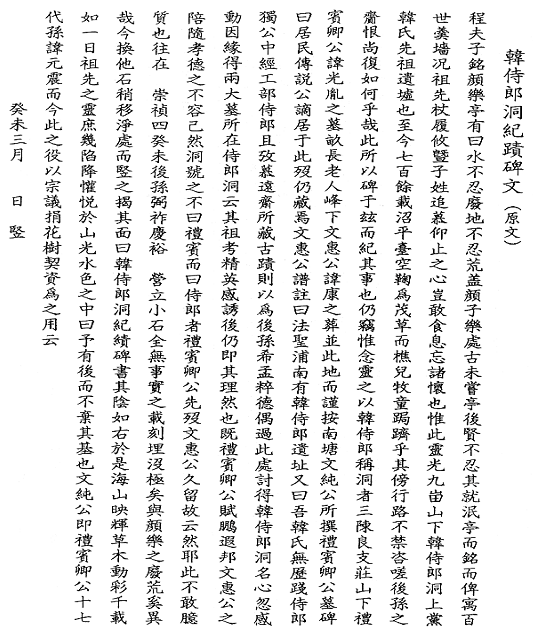 韓侍郎洞紀蹟碑文（原文）
程夫子銘顏樂亭有曰水不忍廢地不忍荒盖顏子樂處古未嘗亭後賢不忍其就泯亭而銘而俾寓百
世羹墻况祖先杖屨攸曁子姓追慕仰止之心豈敢食息忘諸懷也惟此靈光九峀山下韓侍郎洞上黨
韓氏先祖遺墟也至今七百餘載沼平臺空鞠爲茂草而樵兒牧童跼躋乎其傍行路不禁咨嗟後孫之
齎恨尚復如何乎哉此所以碑于玆而紀其事也仍竊惟念靈之以韓侍郎稱洞者三陳良支莊山下禮
賓卿公諱光胤之墓畝長老人峰下文惠公諱康之葬並此地而謹按南塘文純公所撰禮賓卿公墓碑
曰居民傳説公謫居于此歿仍藏焉文惠公譜註曰法聖浦南有韓侍郎遺址又曰吾韓氏無歷踐侍郎
獨公中經工部侍郎且攷慕遠齋所藏古蹟則以爲後孫希孟粹德偶過此處討得韓侍郎洞名心忽感
動因緣得兩大墓所在侍郎洞云其祖考精英感誘後仍即其理然也既禮賓卿公賦鵬遐邦文惠公之
陪隨孝德之不容已然洞號之不曰禮賓而曰侍郎者禮賓卿公先歿文惠公久留故云然耶此不敢臆
質也往在　崇禎四癸未後孫弼祚慶裕　營立小石全無事實之載刻埋沒極矣與顏樂之廢荒奚異
哉今換他石稍移淨處而竪之揭其面曰韓侍郎洞紀績碑書其陰如右於是海山映輝草木動彩千載
如一日祖先之靈庶幾陷降懽悅於山光水色之中曰予有後而不棄其基也文純公即禮賓卿公十七
代孫諱元震而今此之役以宗議捐花樹契資爲之用云
癸未三月　日　竪